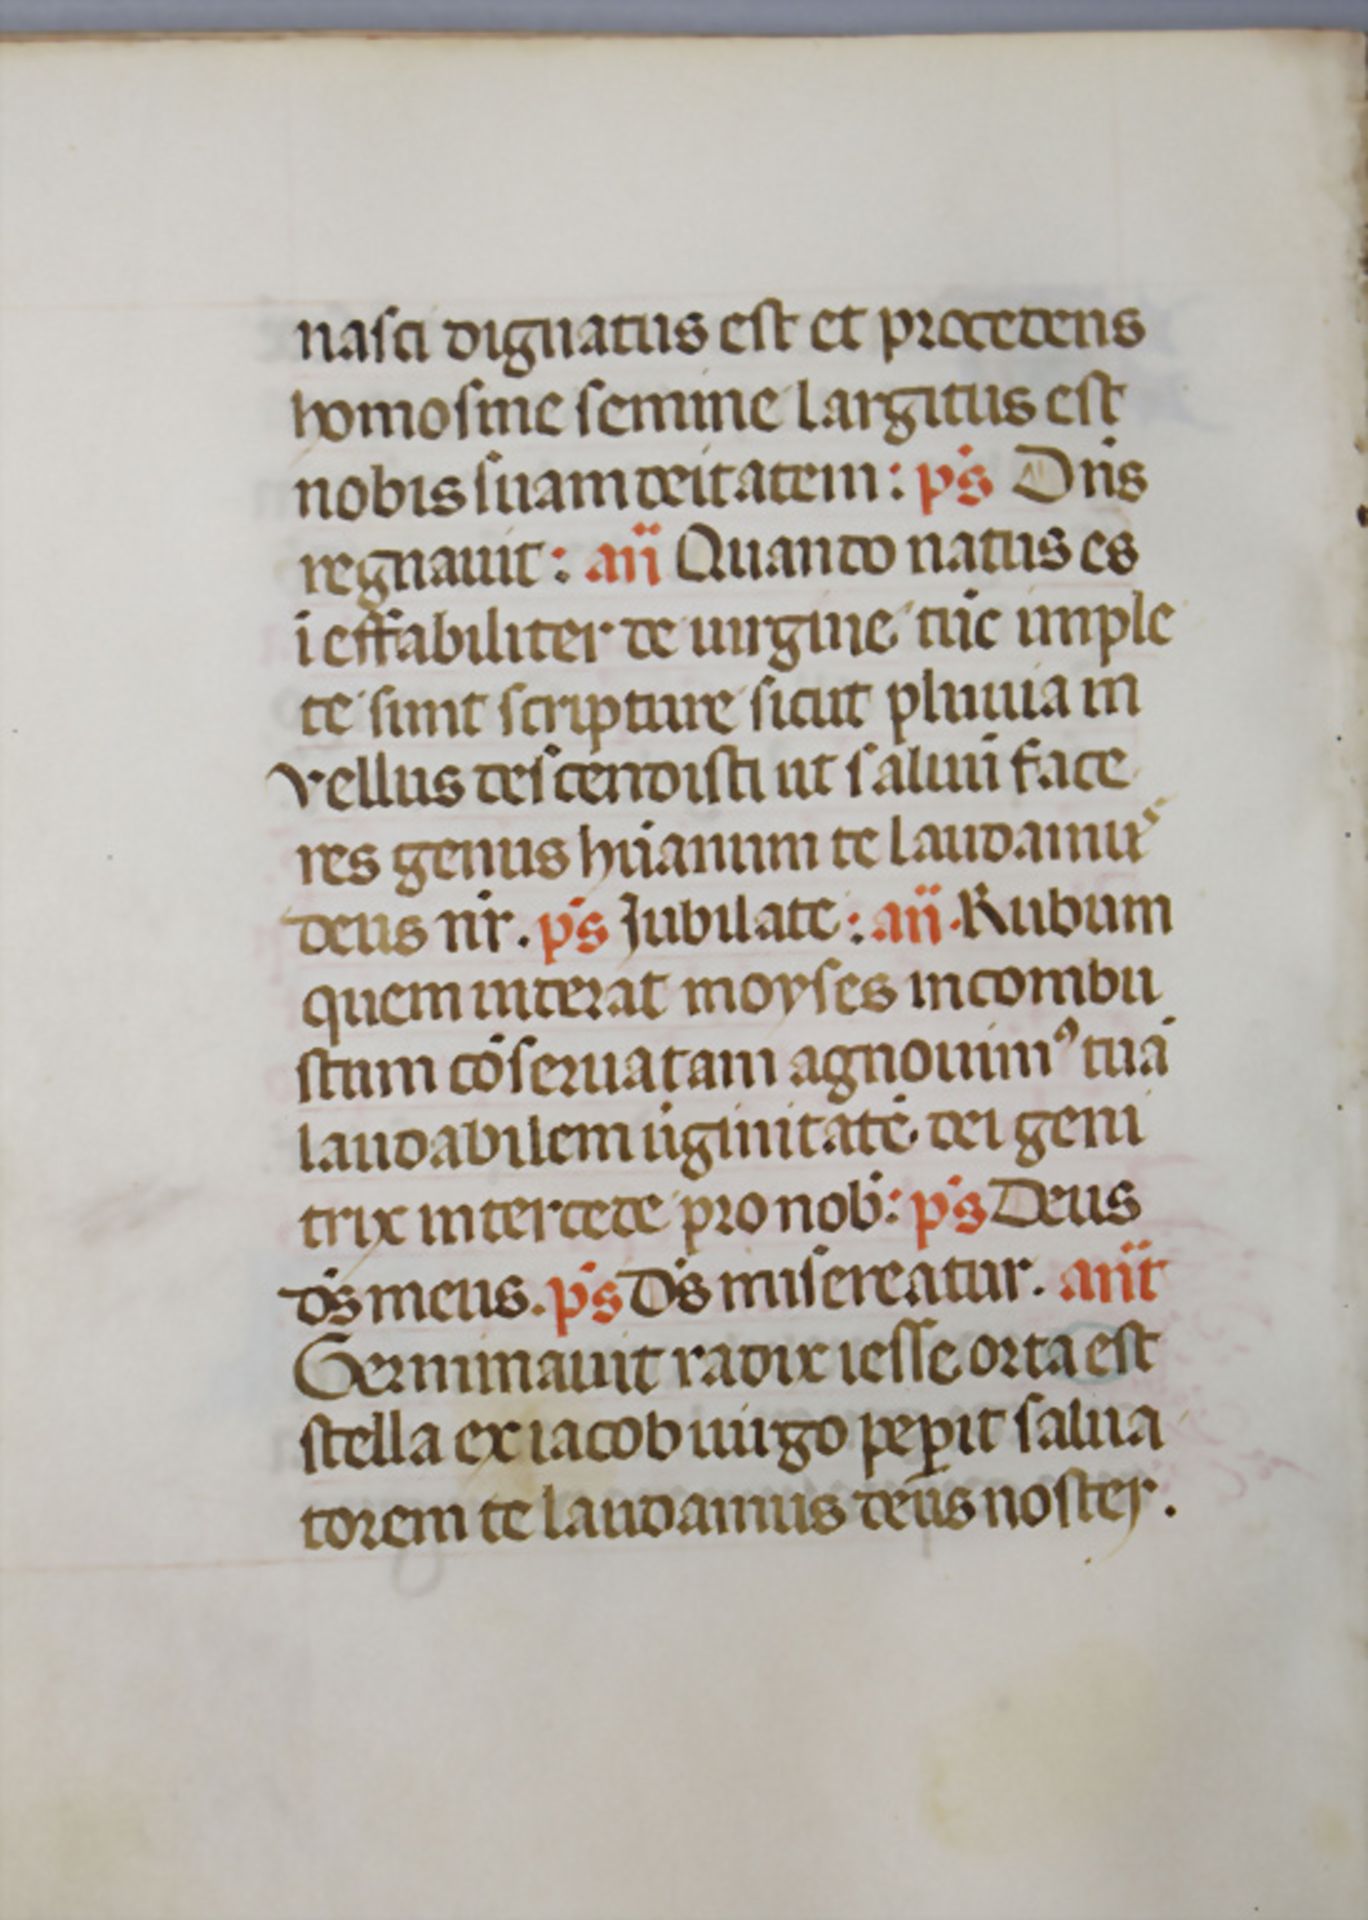 nasci dignatus est et procedens
homo sine semine largitus est
nobis suam deitatem : ps̄ Dn̄s
regnauit : an̄ Quando natus es
ī effabiliter de uirgine tūc imple
te sunt scripture sicut pluuia in
vellus descendisti ut saluū face
res genus hūanum te laudamus
deus nr̄. ps̄ Jubilate : an̄. Rubum
quem uiderat moyses incombu
stum cōseruatam agnouimꝰ tuā
laudabilem uiginitatē dei geni
trix intercede pro nob̄ : ps̄ Deus
ds̄ meus. ps̄ Ds̄ misereatur. ant̄
Germinauit radix iesse orta est
stella ex iacob uiigo peꝑit salua
torem te laudamus deus noster.